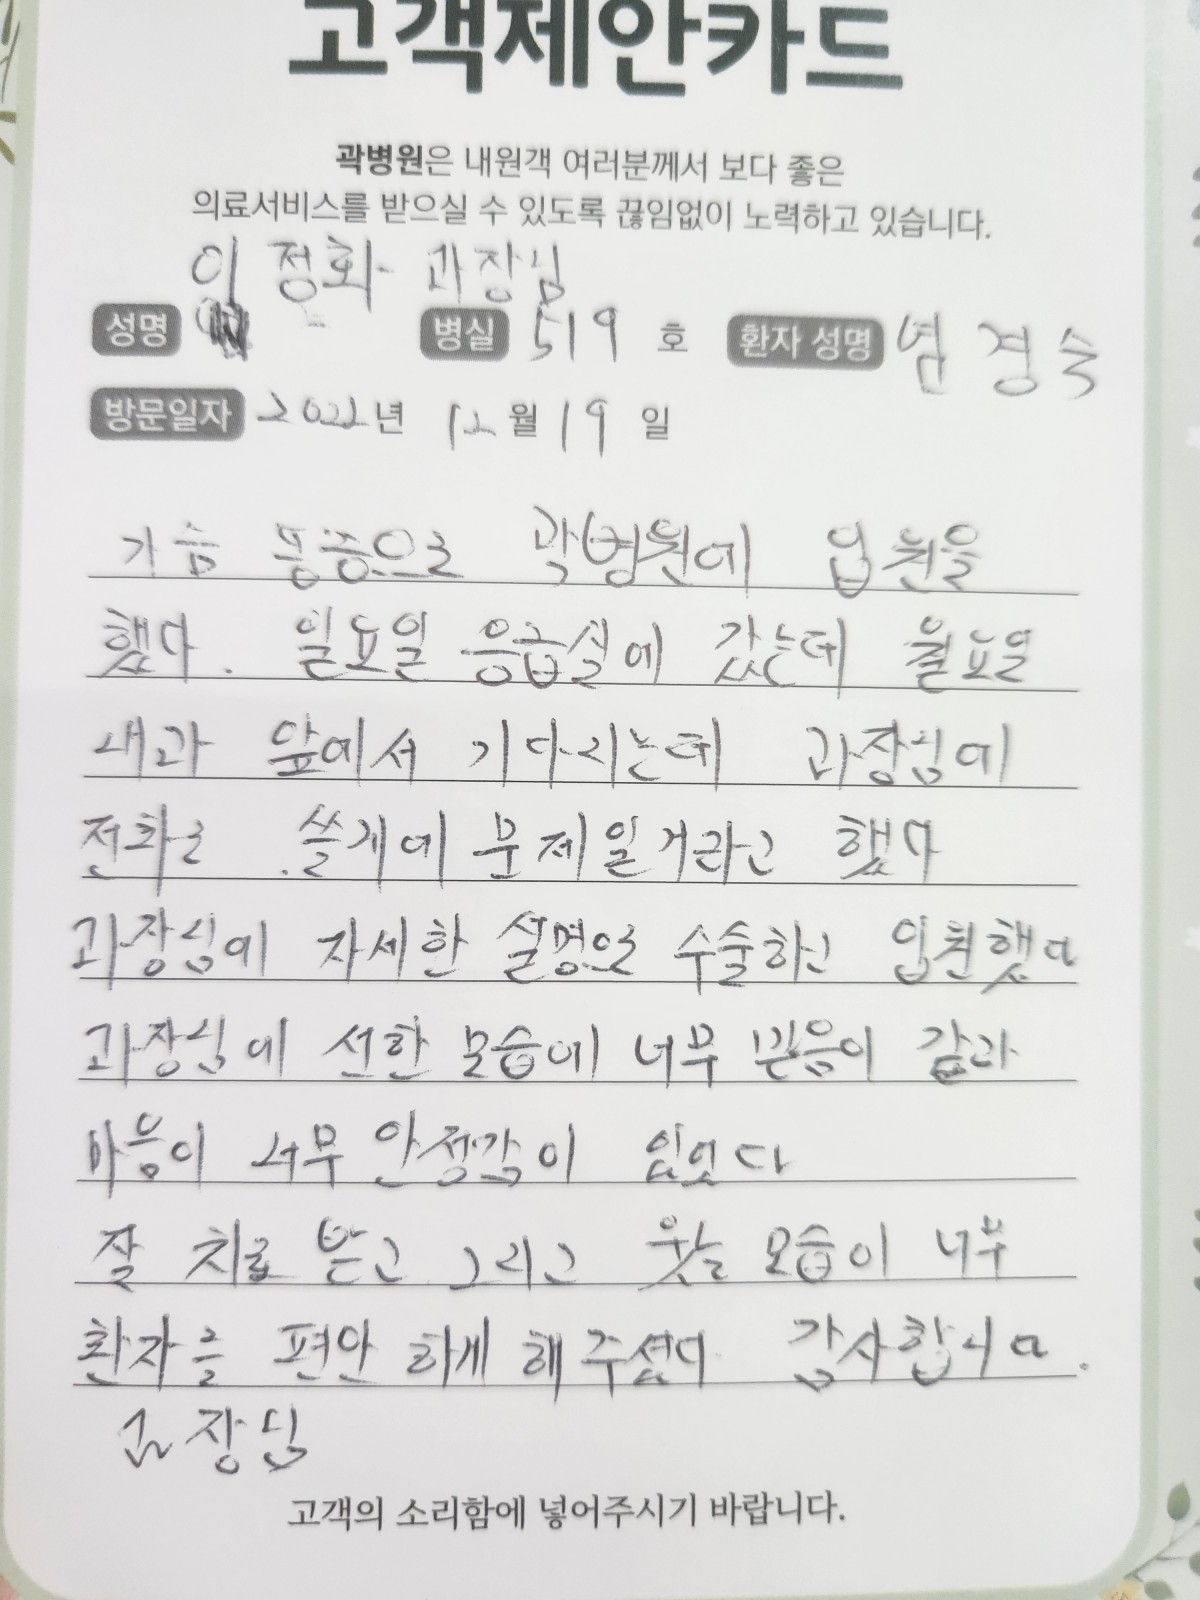 고객제안카드
곽병원은 내원객 여러분께서 보다 좋은
의료서비스를 받으실 수 있도록 끊임없이 노력하고 있습니다.
정화 과장님
성명 병실 519 호 환자 성명 염경숙
방문일자 2022년 12월 19일
가슴 통증으로 곽병원에 입원을
했다. 일요일 응급실에 갔는데 월요일
내과 앞에서 기다리는데 과장님에
전화로 쓸개에 문제일거라고 했다
과장님에 자세한 설명으로 수술하고 입원했다
과장님에 선한 모습에 너무 믿음이 갔고
마음이 너무 안정감이 있었다
잘 치료 받고 그리고 웃는 모습이 너무
환자를 편안 하게 해 주셨다 감사합니다.
과장님
고객의 소리함에 넣어주시기 바랍니다.